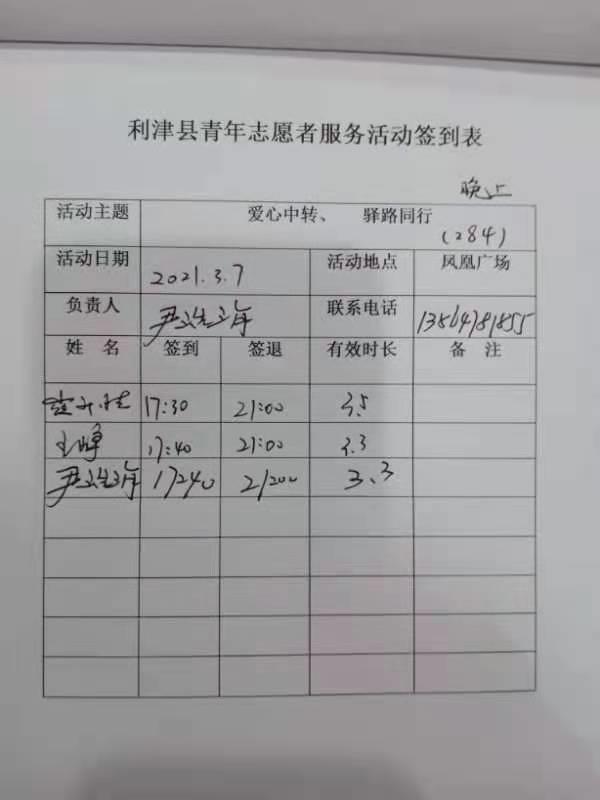 利津县青年志愿者服务活动签到表
晚上
活动主题 爱心中转、 驿路同行
(284)
活动日期 2021.3.7 活动地点 凤凰广场
负责人 尹 海 联系电话 13864781855
姓 名 签到 签退 有效时长 备 注
17:30 21:00 3.5
王峰 17:40 21:00 3.3
尹 海 17240 21200 3.3